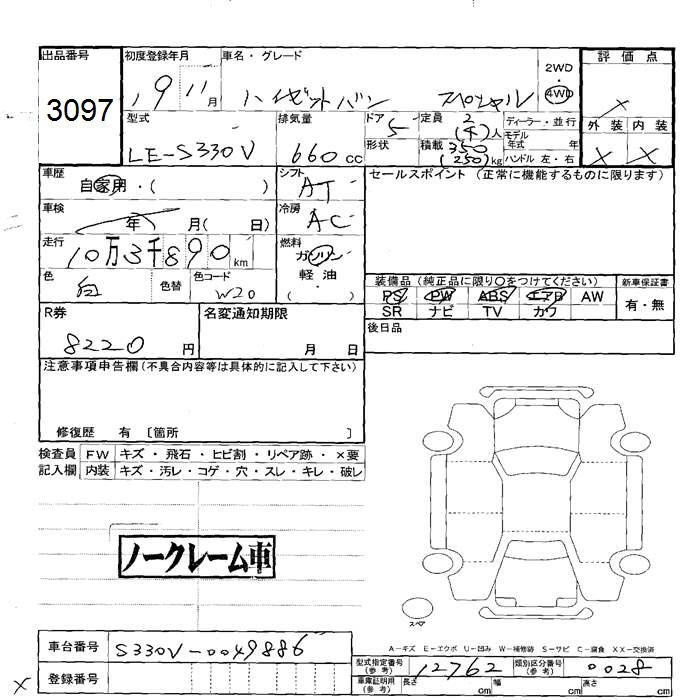 出品番号 初度登録年月 車名・グレード 2WD・4WD 評価点
3097 19 11月 ハイゼットバン スペシャル ×
型式 排気量 ドア 定員 2 (4)人 ディーラー・並行 外装 内装
LE-S330V 660cc 5 モデル年式 年
形状 積載 350 (250)kg ハンドル 左・右 × ×
車歴 自家用・( ) シフト AT セールスポイント (正常に機能するものに限ります)
車検 年 月( 日) 冷房 AC
走行 10万3千890km 燃料 ガソリン
軽油
( )
色 白 色替 色コード W20
装備品 (純正品に限り○をつけてください) 新車保証書
PS PW ABS エアB AW 有・無
SR ナビ TV カワ
R券 名変通知期限 後日品
8220円 月 日
注意事項申告欄 (不具合内容等は具体的に記入して下さい)
修復歴 有 〔箇所 〕
検査員 FW キズ・飛石・ヒビ割・リペア跡・×要
記入欄 内装 キズ・汚レ・コゲ・穴・スレ・キレ・破レ
ノークレーム車
スペア
A-キズ E-エクボ U-凹み W-補修跡 S-サビ C-腐食 XX-交換済
車台番号 S330V-0049886
型式指定番号(参考) 12762 類別区分番号(参考) 0028
× 登録番号 車庫証明用(参考) 長さ cm 幅 cm 高さ cm